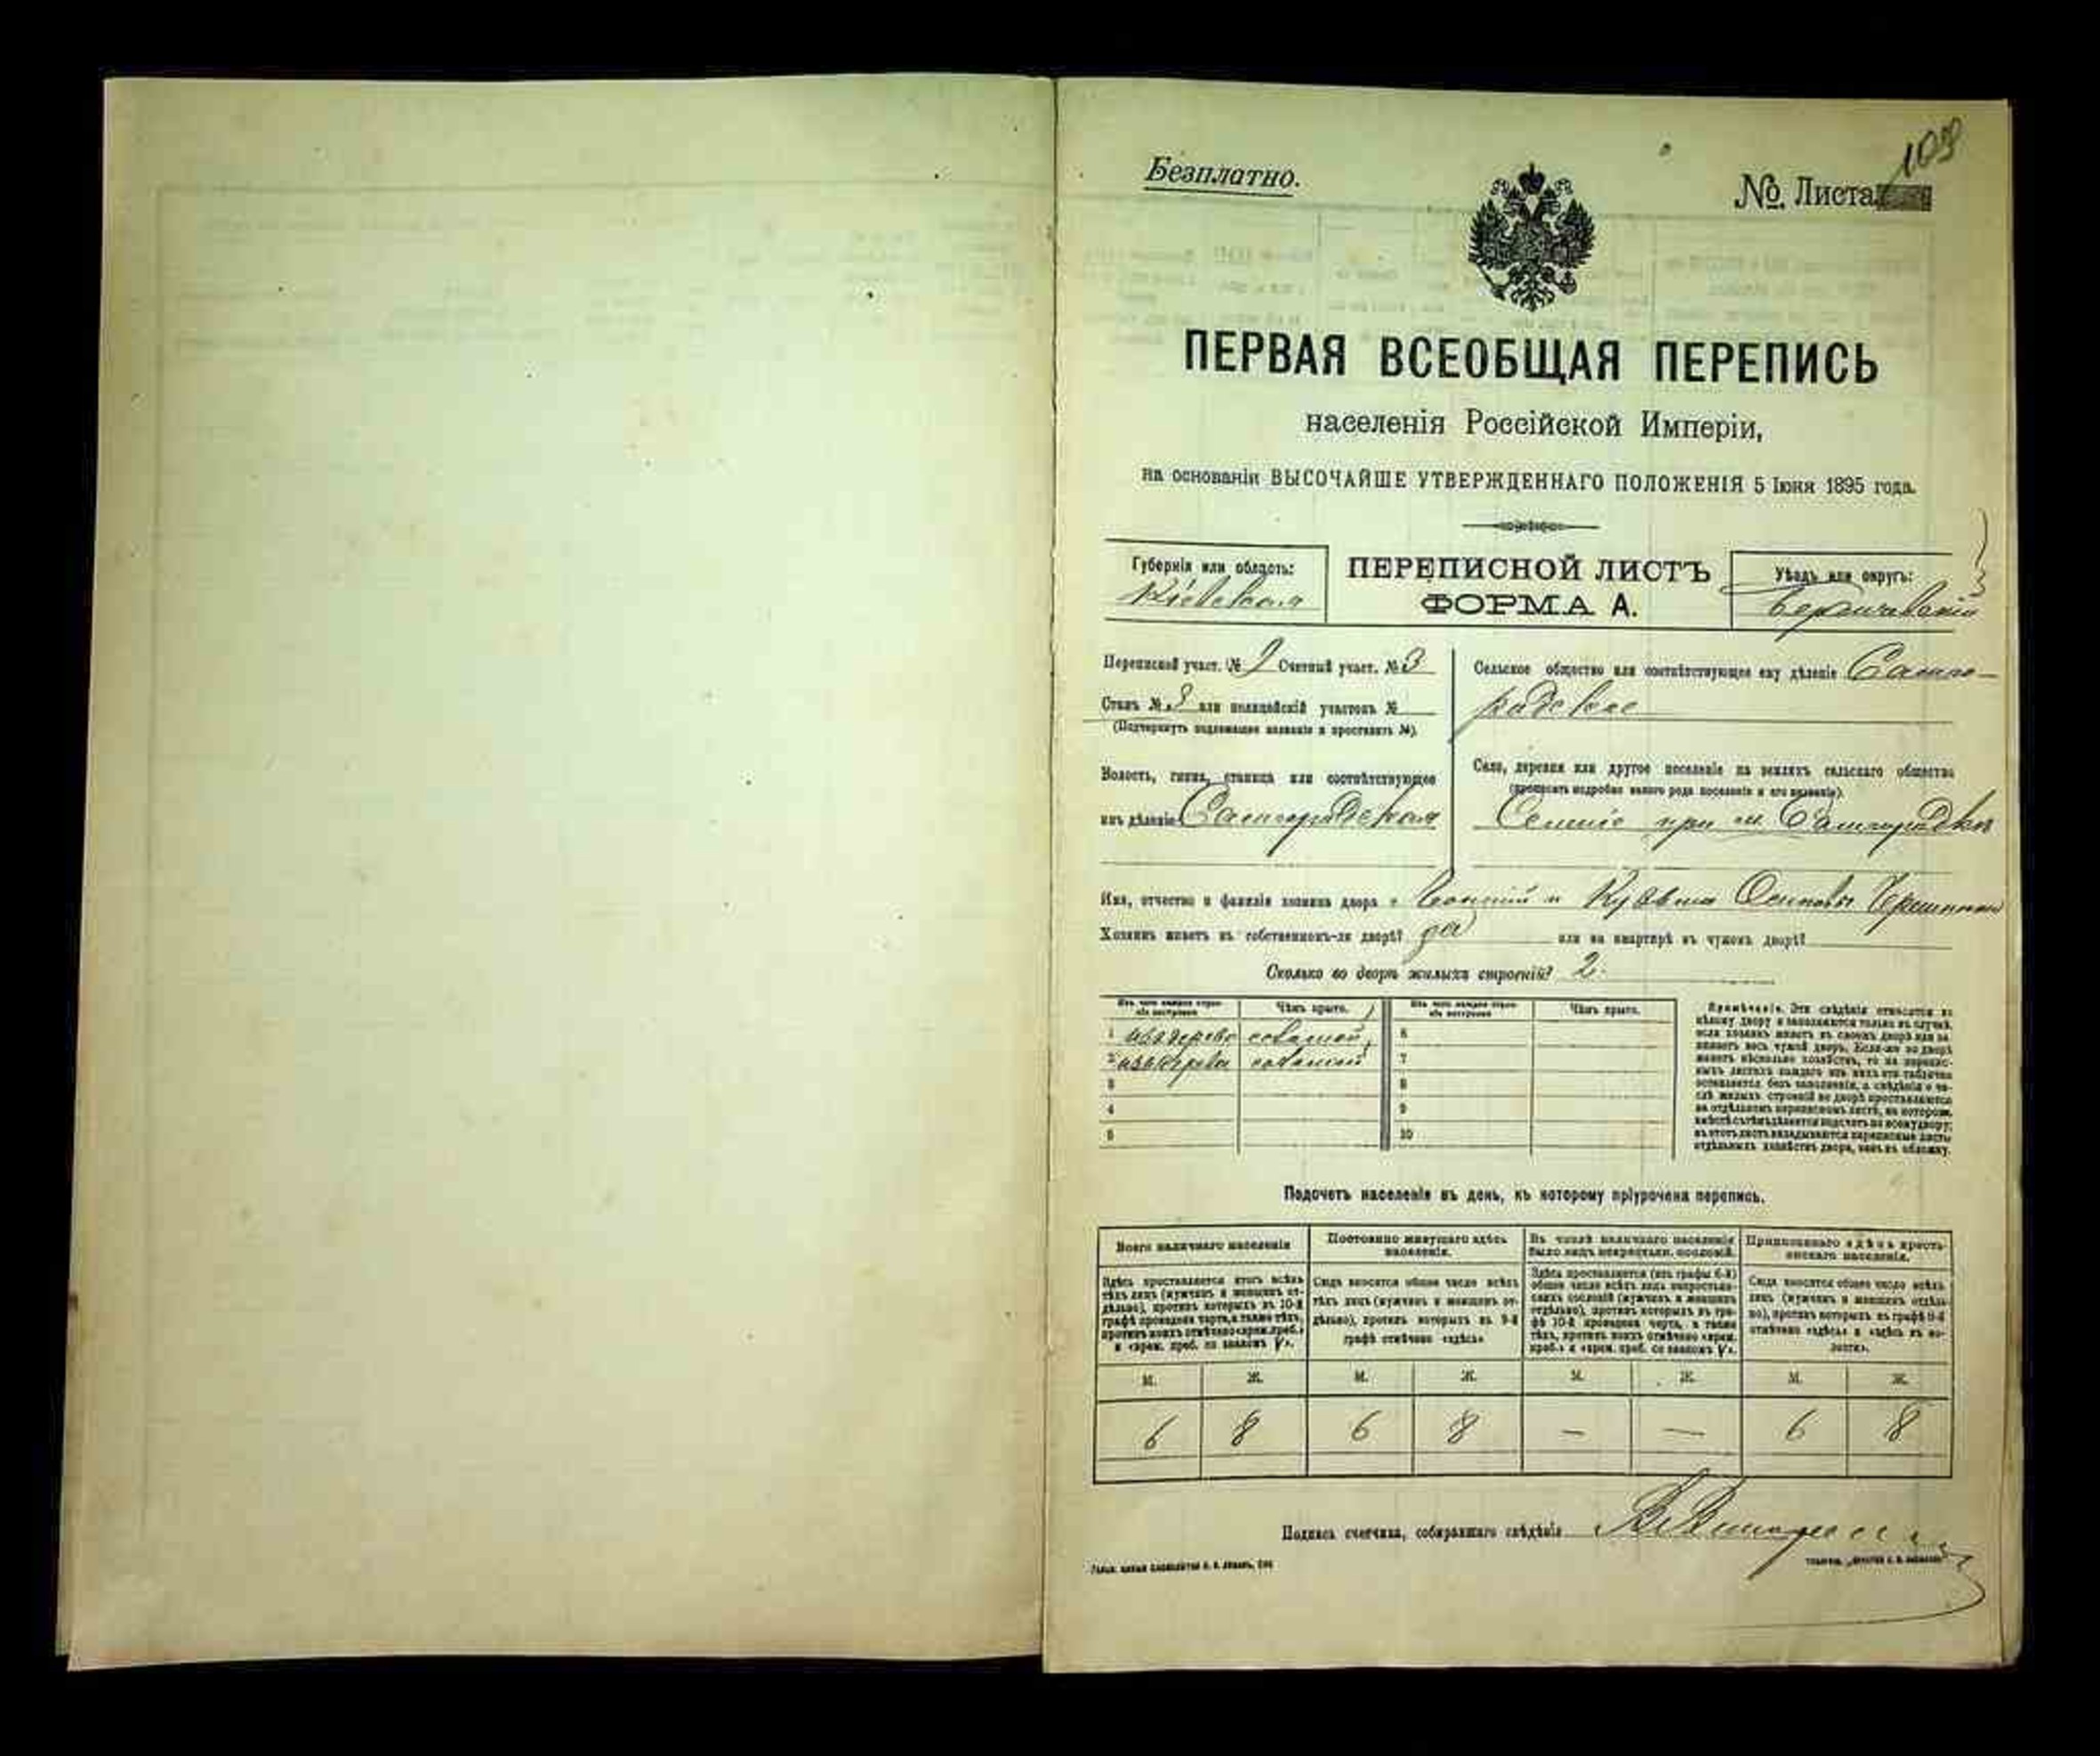 103
Безплатно.
№. Листа
ПЕРВАЯ ВСЕОБЩАЯ ПЕРЕПИСЬ
населенія Россійской Имперіи,
на основаніи ВЫСОЧАЙШЕ УТВЕРЖДЕННАГО ПОЛОЖЕНІЯ 5 Іюня 1895 года.
Губернія или область:
Кіевская
ПЕРЕПИСНОЙ ЛИСТЪ
ФОРМА А.
Уѣздъ или округъ:
Бердичевскій
Переписной участ. № 9 Счетный участ. № 3
Станъ № 3 или полицейскій участокъ №
(Подчеркнуть подлежащее названіе и проставить №).
Волость, гмина, станица или соотвѣтствующее
имъ дѣленіе Самгородская
Сельское общество или соотвѣтствующее ему дѣленіе Самго-
родское
Село, деревня или другое поселеніе на земляхъ сельскаго общества
(прописать подробно какого рода поселеніе и его названіе).
при м. Самгородкѣ
Имя, отчество и фамилія хозяина двора и Кузьма Осиповы
Хозяинъ живетъ въ собственномъ-ли дворѣ? да или на квартирѣ въ чужомъ дворѣ?
Сколько во дворѣ жилыхъ строеній? 2.
Изъ чего каждое строе-
ніе построено
Чѣмъ крыто.
Изъ чего каждое строе-
ніе построено
Чѣмъ крыто.
1 изъ дерева соломой 6
2 изъ дерева соломой 7
3 8
4 9
5 10
Примѣчаніе. Эти свѣдѣнія относятся къ
цѣлому двору и заполняются только въ случаѣ,
если хозяинъ живетъ въ своемъ дворѣ или за-
нимаетъ весь чужой дворъ. Если-же во дворѣ
имѣетъ нѣсколько хозяйствъ, то на перепис-
ныхъ листахъ каждаго изъ нихъ эта табличка
оставляется безъ заполненія, а свѣдѣнія о чи-
слѣ жилыхъ строеній во дворѣ проставляются
на отдѣльномъ переписномъ листѣ, на которомъ
вмѣстѣ съ тѣмъ дѣлается подсчетъ по всему двору;
въ этотъ листъ вкладываются переписные листы
отдѣльныхъ хозяйствъ двора, какъ въ обложку.
Подсчетъ населенія въ день, къ которому пріурочена перепись.
Всего наличнаго населенія
Здѣсь проставляется итогъ всѣхъ
тѣхъ лицъ (мужчинъ и женщинъ от-
дѣльно), противъ которыхъ въ 10-й
графѣ проведена черта, а также тѣхъ,
противъ коихъ отмѣчено «врем. преб.»
и «врем. преб. со знакомъ V».
Постоянно живущаго здѣсь
населенія.
Сюда вносится общее число всѣхъ
тѣхъ лицъ (мужчинъ и женщинъ от-
дѣльно), противъ которыхъ въ 9-й
графѣ отмѣчено «здѣсь»
Въ числѣ наличнаго населенія
было лицъ некрестьян. сословій.
Здѣсь проставляется (изъ графы 6-й)
общее число всѣхъ лицъ некрестьян-
скихъ сословій (мужчинъ и женщинъ
отдѣльно), противъ которыхъ въ гра-
фѣ 10-й проведена черта, а также
тѣхъ, противъ коихъ отмѣчено «врем.
преб.» и «врем. преб. со знакомъ V».
Приписаннаго здѣсь кресть-
янскаго населенія.
Сюда вносится общее число всѣхъ
лицъ (мужчинъ и женщинъ отдѣль-
но), противъ которыхъ въ графѣ 8-й
отмѣчено «здѣсь» и «здѣсь въ во-
лости».
М. Ж. М. Ж. М. Ж. М. Ж.
6 8 6 8 — — 6 8
Подпись счетчика, собиравшаго свѣдѣнія